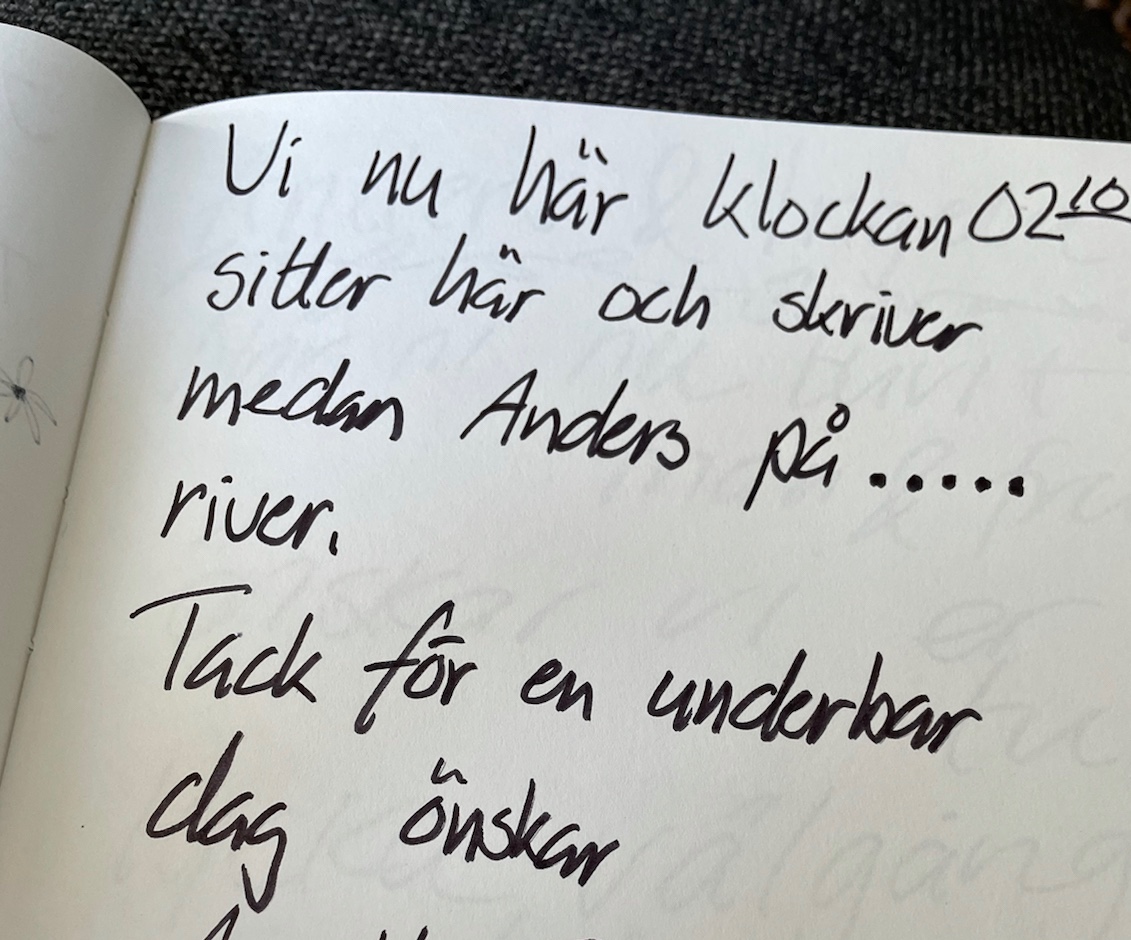 Vi nu här klockan 02 10
sitter här och skriver
medan Anders på .....
river.
Tack för en underbar
dag önskar